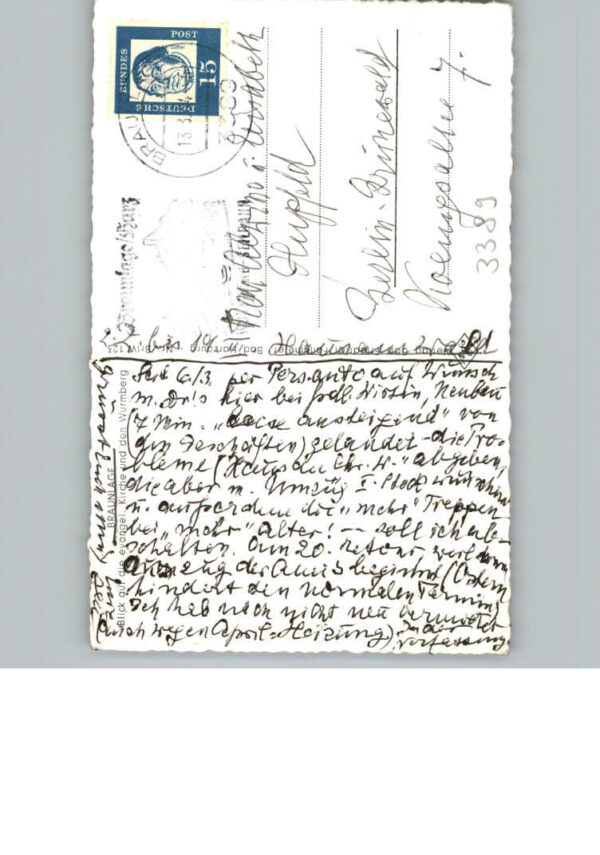 DEUTSCHE
BUNDES
POST
15
Luther
BRAUNL
13.3.
Braunlage/Harz
Hupfeld
Berlin-Grunewald
Koenigsallee 7.
3389
BRAUNLAGE
Blick auf die evangel. Kirche und den Wurmberg
Seit 6./3. per Persauto auf Wunsch
m. Dr's hier bei frdl. Wirtin, Neubau
(7 Min. "leise ansteigend" von
den Geschäften) gelandet - die Pro-
bleme (Haus an Chr. W." abgeben,
die aber m. Umzug I. Stock wünschen
u. außerdem die "mehr" Treppen
bei "mehr" Alter! — soll ich ab-
schalten. Am 20. retour weil dann
Auszug der Amis beginnt (Ostern
hindert den normalen Termin)
Ich hab noch nicht neu vermietet
(auch wegen April-Heizung)
Verfassung.